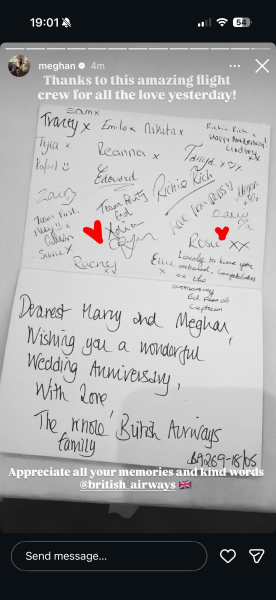 19:01
54
meghan 4m
Thanks to this amazing flight
crew for all the love yesterday!
Sam x
Tracey x Emilia x Nikita x
Richie Rich x
Happy Anniversary!
Tyja x
Reanna x
Tanya
Rafael
Edouard
Richie Rich
Team Purs
Ed
x
Rosie xx
Rachel
Ellie x
Lovely to have you
onboard, Congratulations
on the
anniversary
Ed French
Captain
Dearest Harry and Meghan,
Wishing you a wonderful
Wedding Anniversary,
With Love
The whole British Airways
family
BA269-18/05
Appreciate all your memories and kind words
@british_airways 🇬🇧
Send message...